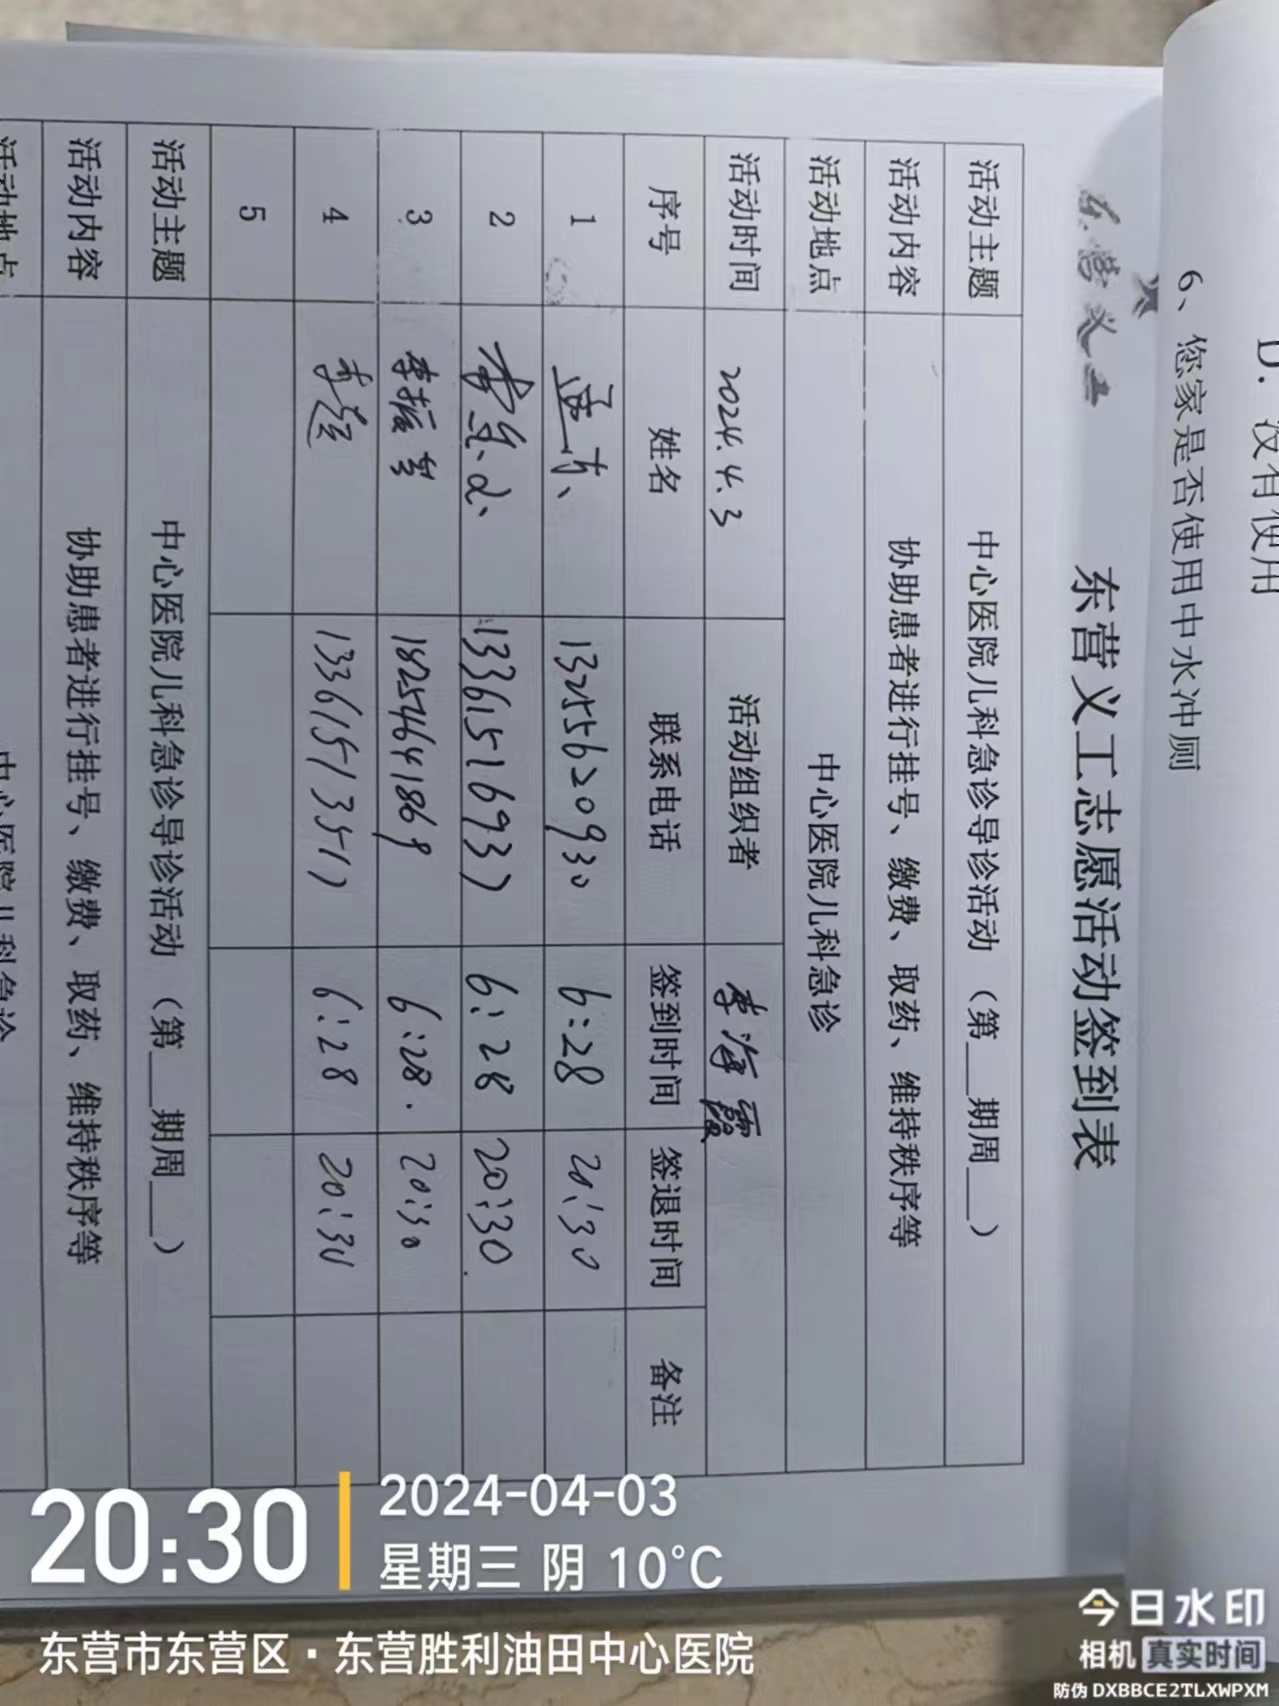 D. 没有使用
6、您家是否使用中水冲厕
东营义工
东营义工志愿活动签到表
活动主题 中心医院儿科急诊导诊活动（第___期周___）
活动内容 协助患者进行挂号、缴费、取药、维持秩序等
活动地点 中心医院儿科急诊
活动时间 2024.4.3 活动组织者 李海霞
序号 姓名 联系电话 签到时间 签退时间 备注
1 13255620930 6:28 20:30
2 13361516937 6:28 20:30
3 18254641869 6:28. 20:30
4 李超 13361513511 6:28 20:30
5
活动主题 中心医院儿科急诊导诊活动（第___期周___）
活动内容 协助患者进行挂号、缴费、取药、维持秩序等
活动地点 中心医院儿科急诊
20:30
2024-04-03
星期三 阴 10°C
东营市东营区·东营胜利油田中心医院
今日水印
相机 真实时间
防伪 DXBBCE2TLXWPXM